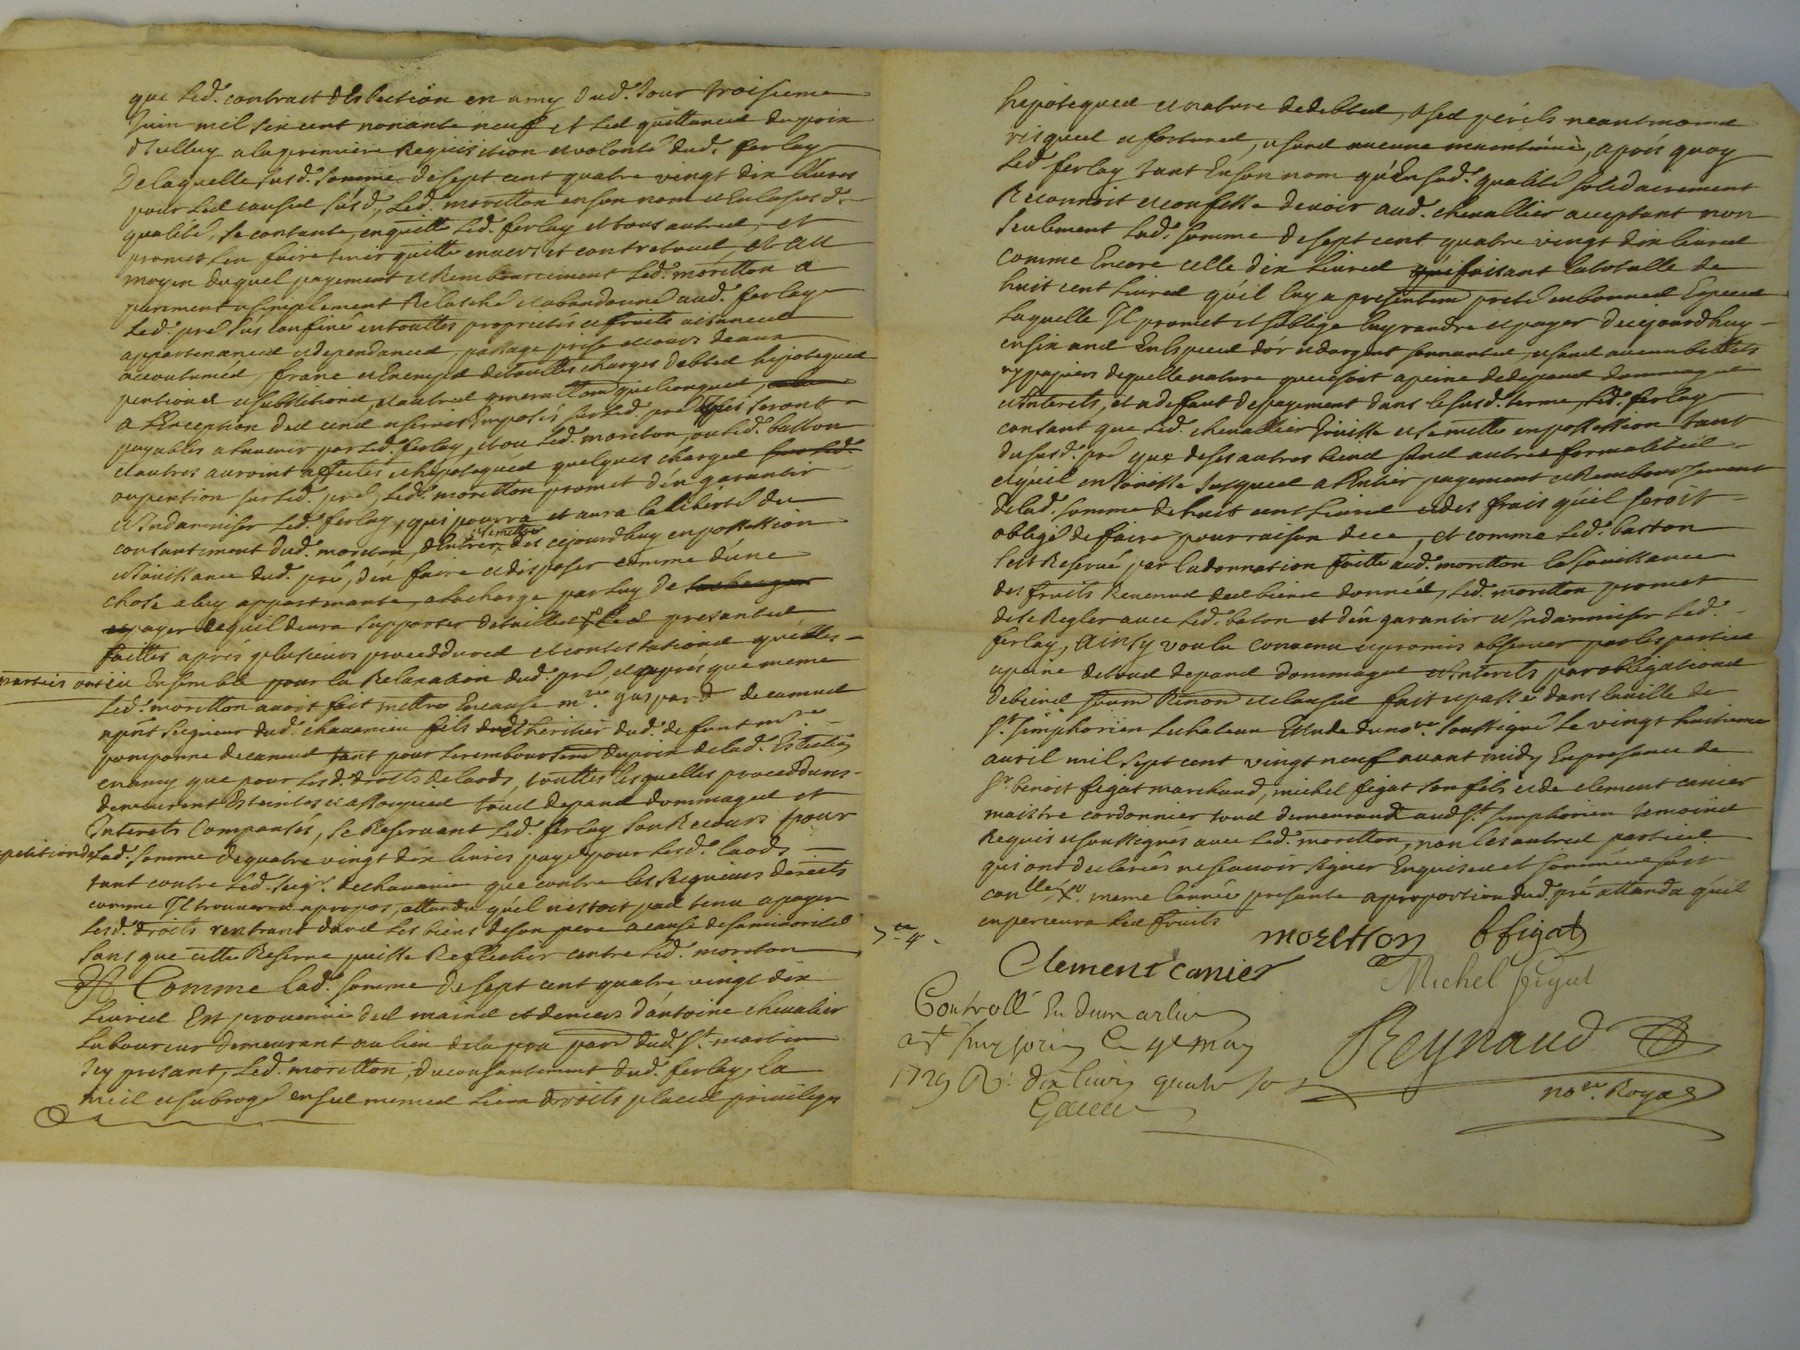 que led. contract d'Eslection en amy dud. Jour troisieme
Juin mil six cent nonante neuf et led quittances du prix
d'Icelluy a la premiere Requisition et volonté dud. ferlay
De laquelle susd. somme de sept cent quatre vingt dix livres
pour led causes susd., Led. moretton en son nom et En la susd.
qualité, se contante, en quitte Led. ferlay et tous autres, et
promet l'en faire tenir quitte envers et contre tous, et au
moyen duquel payement et Remboursement Led. moretton a
purement et simplement Relasché et abandonné aud. ferlay
Led. pré sus confiné en touttes proprietés et fruits aisances
appartenances et dependances, passage prise et cours deaux
accoutumés, franc et Exempt de touttes charges debtes hipoteques
pentions et substitions, et autres generallement quelconques,
a l'Exception des cens et servis Imposés sur led. pré seront
payables a l'avenir par led. ferlay, et ou Led. moretton, ou led. batton
et autres auroint affectés et hipotequés quelques charges
ou pention sur led. pré, Led. moretton promet d'en garantir
et Indamniser Led. ferlay, qui pourra et aura la liberté du
se mettre
consantement dud. moretton, d'Entrer, des cejourdhuy en possession
et Jouissance dud. pré, d'en faire et disposer comme d'une
chose a luy appartenante, a la charge par luy de
payer ce quil devra supporter de tailles Led presantes
faittes aprés plusieurs proceddures et contestations quelles
parties ont eu Ensemble pour la Relaxation dud. pré, et aprés que meme
Led. moretton avoit fait mettre En cause mre. gaspard de camus
Seigneur dud. chavanieu fils et heritier dud. defunt mre
pomponne de camus tant pour le rembourssem du prix de lad. Eslection
en amy que pour lesd. droits de laods, touttes lesquelles proceddures
demeurent Esteintes et assopies tous depans dommages et
Interets Compansés, se Reservant Led. ferlay son Recours pour
petition de lad. somme de quatre vingt dix livres payé pour lesd. laods
tant contre Led. seigr. de chavanieu que contre les seigneurs directs
comme Il trouvera a propos, attandu qu'il n'estoit pas tenu a payer
lesd. droits rentrant dans les biens de son pere a cause de sa minorité
sans que cette Reserve puisse Reflechir contre Led. moretton
Et Comme lad. somme de sept cent quatre vingt dix
Livres Est provenue des mains et deniers d'antoine chevalier
Laboureur demeurant au lieu de la pra parr dud. St. martin
Icy presant, Led. moretton, du consantement dud. ferlay, la
mis et subrogé en ses memes Lieu droits place privileges
hipoteques et nature de debtes, a ses périls neantmoins
risques et fortunes, et sans aucune maintenüe, aprés quoy
Led. ferlay tant En son nom qu'En sad. qualité solidairement
Reconnoit et confesse devoir aud. chevallier acceptant non
seulement lad. somme de sept cent quatre vingt dix livres
comme Encore celle dix livres faisant la totalle de
huit cent livres qu'il luy a presentem presté en bonnes Especes
laquelle Il promet et s'oblige luy randre et payer d'cejourdhuy
en six ans En Especes d'or et d'argent sonnantes, et sans aucuns billets
ny papiers de quelle nature que ce soit a peine de depans dommages
et Interets, et a defaut de payement dans le susd. terme, Led. ferlay
consant que Led. chevallier Jouisse et se mette en possession tant
du susd. pré que de ses autres biens sans autres formalités
et qu'il en Jouisse Jusques a l'Entier payement et Remboursement
de lad. somme de huit cent livres et des frais qu'il seroit
obligé de faire pour raison de ce, et comme Led. batton
s'est Reservé par la donnation faitte aud. moretton la Jouissance
des fruits Revenus des biens donnés, Led. moretton promet
de se Regler avec Led. baton et d'en garantir et Indamniser Led.
ferlay, Ainsy voulu convenu et promis observer par les parties
a peine de tous depans dommages et Interets par obligations
de biens soum Renon et clauses fait et passé dans la ville de
St. simphorien Lechateau Etude du nore. soussigné le vingt huitieme
avril mil sept cent vingt neuf avant midy En presance de
Sr. benoit figat marchand, michel figat son fils et de clement canier
maistre cordonnier tous demeurans aud St. simphorien temoins
Requis et soussignés avec Led. moretton, non les autres parties
qui ont declarés ne scavoir signer Enquises et sommées
meme l'année presante a proportion dud. pré attandu qu'il
en percevra les fruits
moretton bfigat
Clement canier
Michel figat
Controllé
a St simphorien Le 9e may
1729 R. dix livres quatre s.
Reynaud
nore. Royal